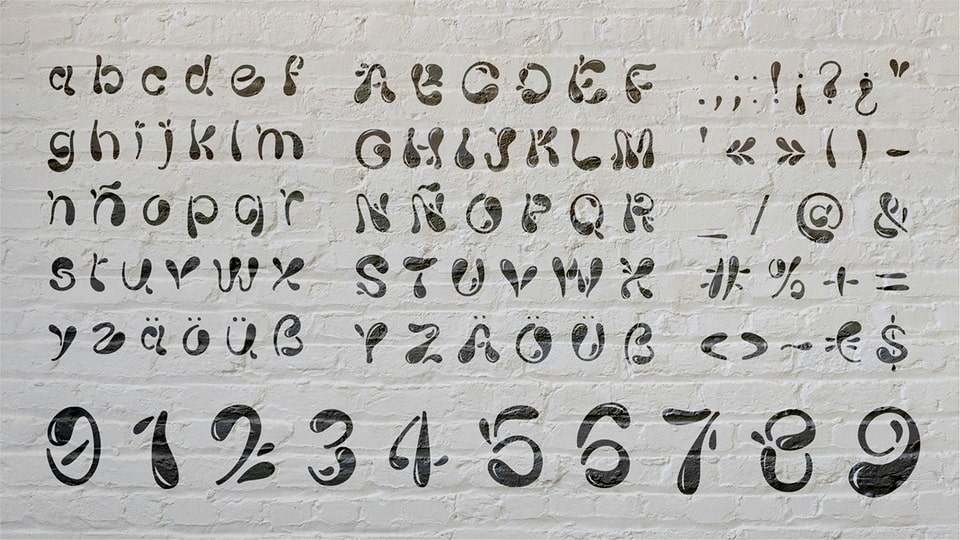 a b c d e f A B C D E F . , ; : ! ¡ ? ¿ "
g h i j k l m G H I J K L M ' « » ( ) -
n ñ o p q r N Ñ O P Q R _ / @ &
s t u v w x S T U V W X # % + =
y z ä ö ü ß Y Z Ä Ö Ü ß < > ~ € $
0 1 2 3 4 5 6 7 8 9